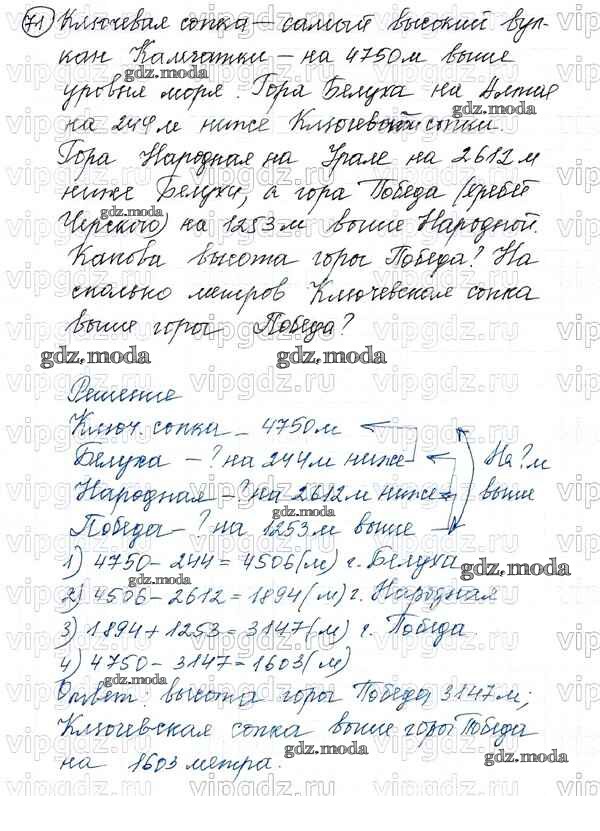 71 Ключевая сопка – самый высокий вул-
кан Камчатки – на 4750 м выше
уровня моря. Гора Белуха на Алтае
на 244 м ниже Ключевской сопки.
Гора Народная на Урале на 2612 м
ниже Белухи, а гора Победа (хребет
Черского) на 1253 м выше Народной.
Какова высота горы Победа? На
сколько метров Ключевская сопка
выше горы Победа?
Решение
Ключ. сопка – 4750 м
Белуха – ? на 244 м ниже На ? м
Народная – ? на 2612 м ниже выше
Победа – ? на 1253 м выше
1) 4750 – 244 = 4506 (м) г. Белуха
2) 4506 – 2612 = 1894 (м) г. Народная
3) 1894 + 1253 = 3147 (м) г. Победа.
4) 4750 – 3147 = 1603 (м)
Ответ: высота горы Победа 3147 м;
Ключевская сопка выше горы Победа
на 1603 метра.
vipgdz.ru
gdz.moda